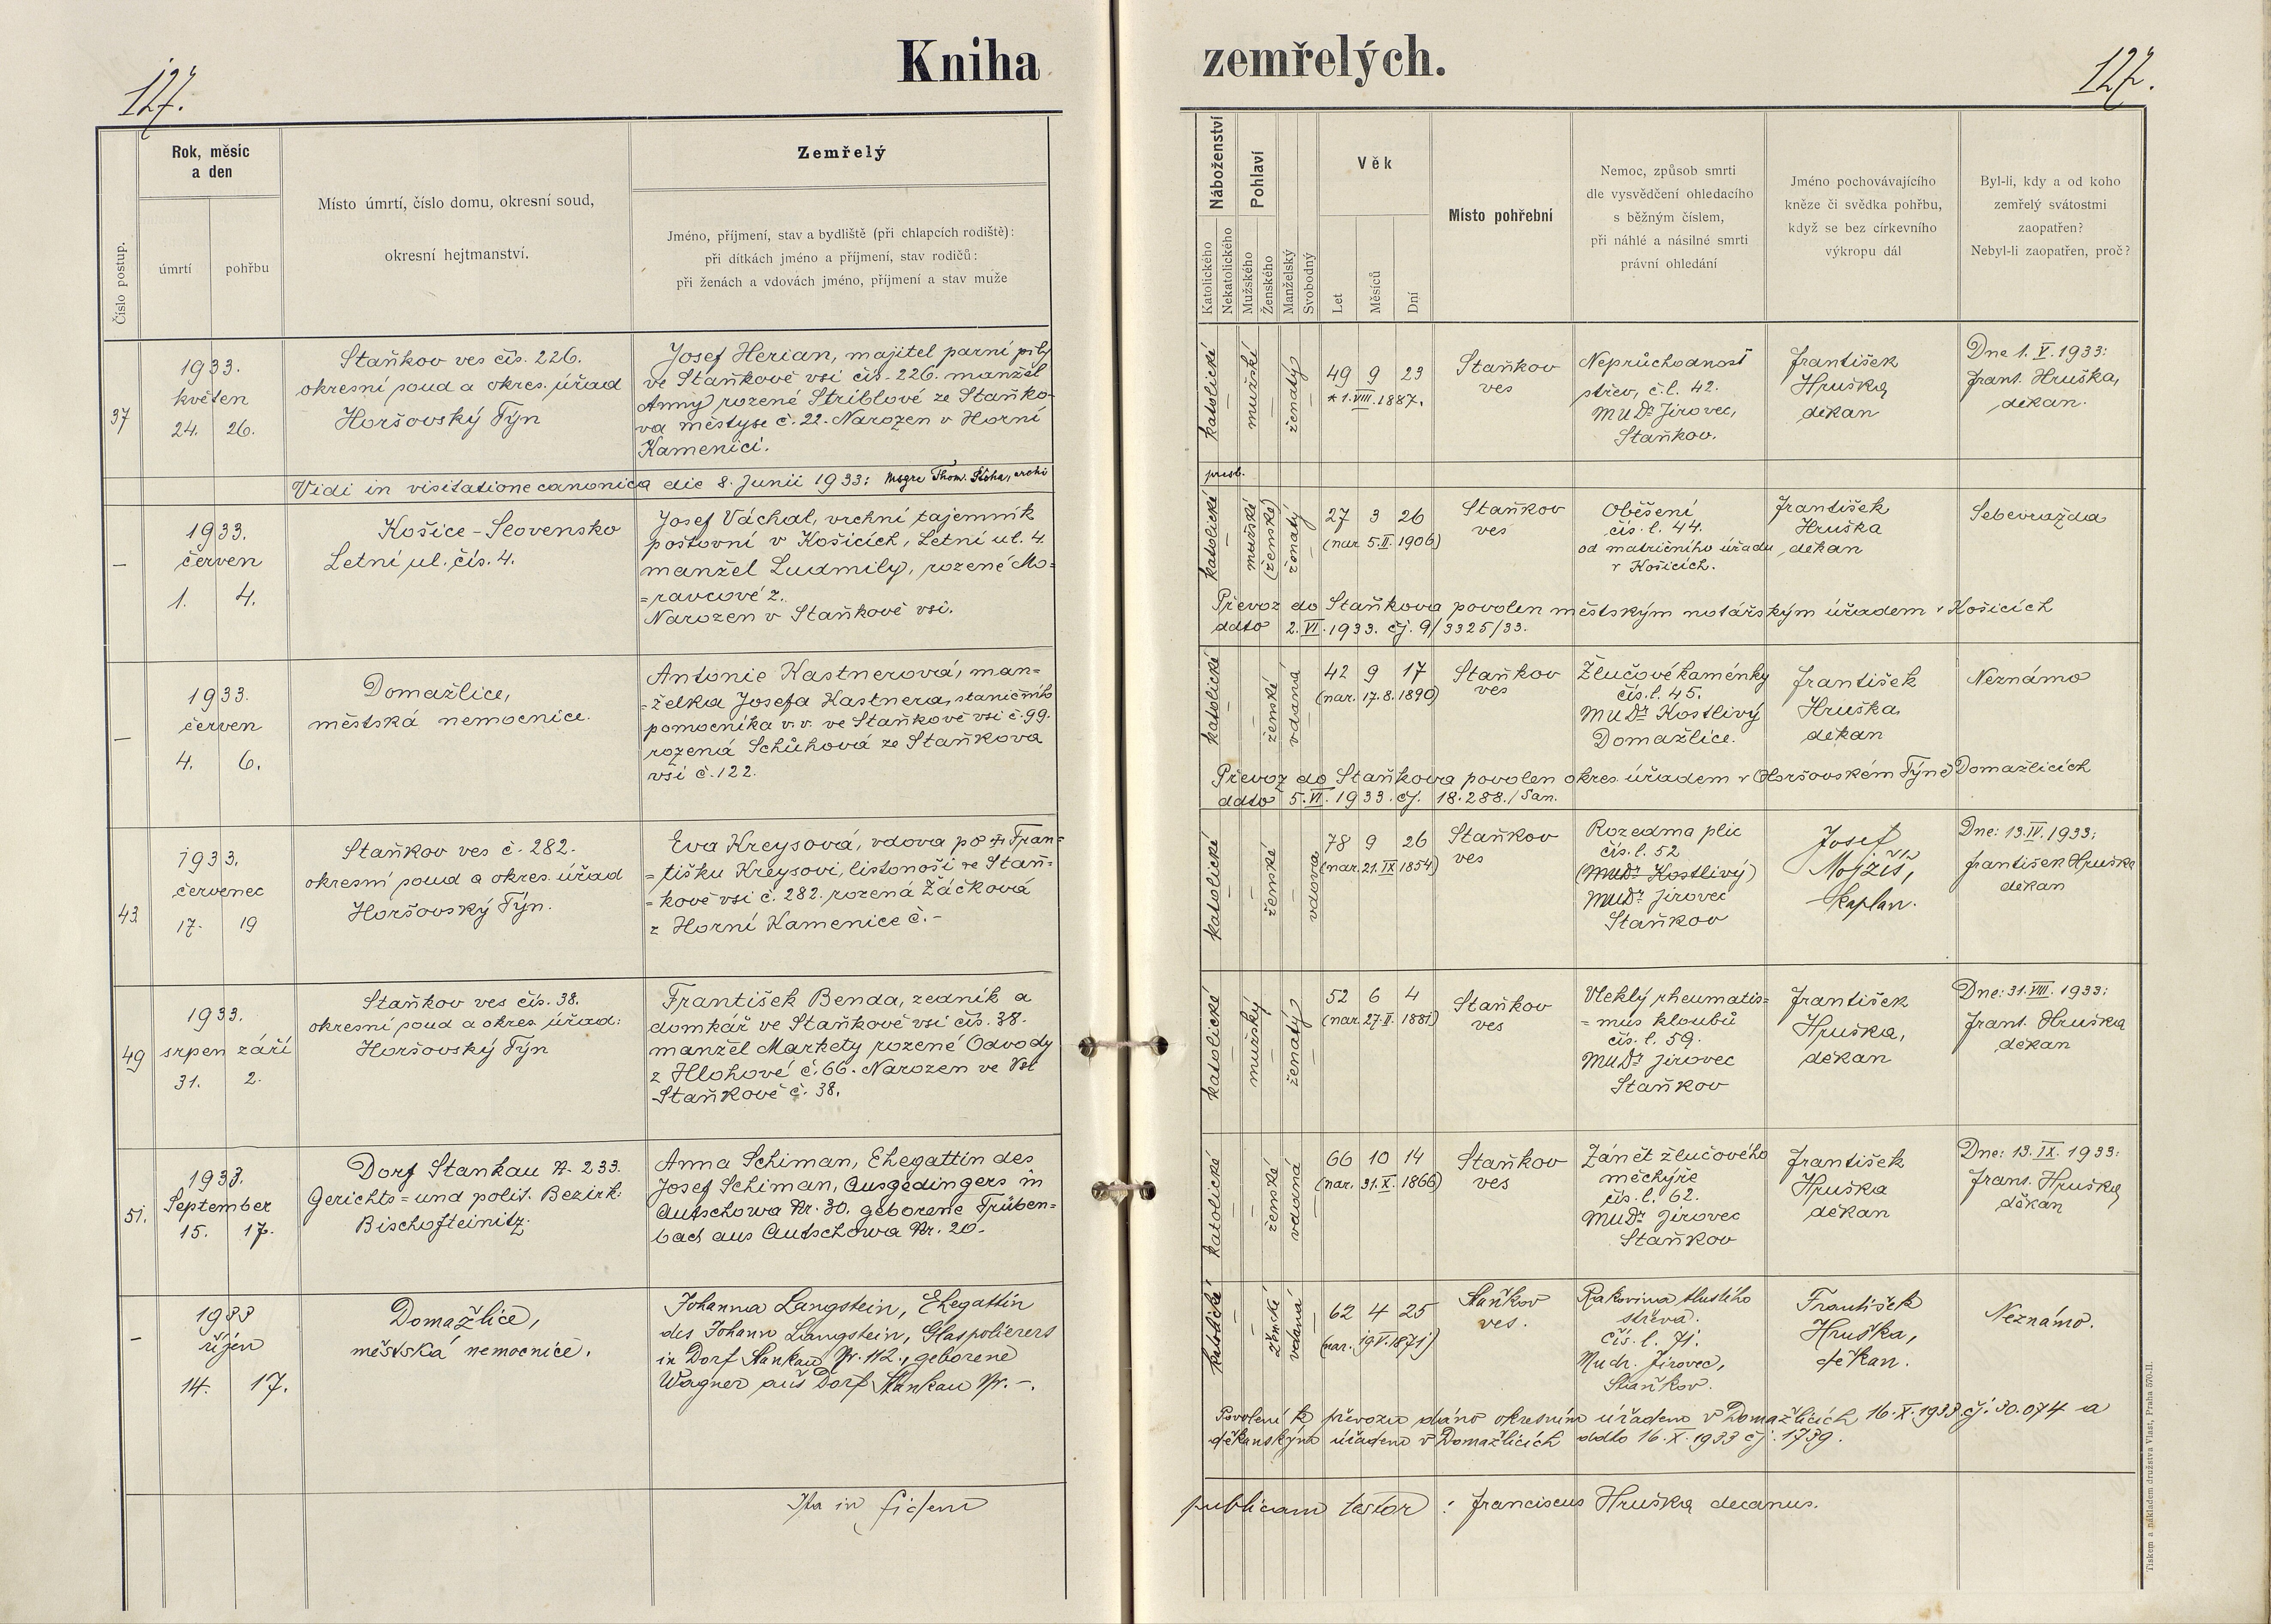 Kniha zemřelých.
127.
127.
Číslo postup.
Rok, měsíc
a den
úmrtí
pohřbu
Místo úmrtí, číslo domu, okresní soud,
okresní hejtmanství.
Zemřelý
Jméno, příjmení, stav a bydliště (při chlapcích rodiště):
při dítkách jméno a příjmení, stav rodičů:
při ženách a vdovách jméno, příjmení a stav muže
Náboženství
Katolického
Nekatolického
Pohlaví
Mužského
Ženského
Manželský
Svobodný
Věk
Let
Měsíců
Dní
Místo pohřební
Nemoc, způsob smrti
dle vysvědčení ohledacího
s běžným číslem,
při náhlé a násilné smrti
právní ohledání
Jméno pochovávajícího
kněze či svědka pohřbu,
když se bez církevního
výkropu dál
Byl-li, kdy a od koho
zemřelý svátostmi
zaopatřen?
Nebyl-li zaopatřen, proč?
37
1933.
květen
24. 26.
Staňkov ves čís. 226.
okresní soud a okres. úřad
Horšovský Týn
Josef Herian, majitel parní pily
ve Staňkově vsi čís. 226. manžel
Anny rozené Striblové ze Staňko-
va městyse č. 22. Narozen v Horní
Kamenici.
katolické
mužské
ženatý
49 9 23
* 1. VIII. 1887.
Staňkov
ves
Neprůchodnost
střev, č.l. 42.
MUDr Jirovec,
Staňkov.
František
Hruška
děkan
Dne 1. V. 1933:
Frant. Hruška,
děkan.
Vidi in visitatione canonica die 8. Junii 1933: Msgre Thom. archi
presb.
–
1933.
červen
1. 4.
Košice - Slovensko
Letní ul. čís. 4.
Josef Váchal, vrchní tajemník
poštovní v Košicích, Letní ul. 4.
manžel Ludmily, rozené Mo=
=ravcové z.
Narozen v Staňkově vsi.
katolické
mužské
(ženské)
ženatý
27 3 26
(nar. 5. II. 1906)
Staňkov
ves
Oběšení
čís. l. 44.
od matričního úřadu
v Košicích.
František
Hruška
děkan
Sebevražda
Převoz do Staňkova povolen městským notářským úřadem v Košicích
ddto 2. VI. 1933. čj. 9/3325/33.
–
1933.
červen
4. 6.
Domažlice,
městská nemocnice.
Antonie Kastnerová, man=
=želka Josefa Kastnera, staničního
pomocníka v.v. ve Staňkově vsi č. 99.
rozená Schůhová ze Staňkova
vsi č. 122.
katolické
ženské
vdaná
42 9 17
(nar. 17. 8. 1890)
Staňkov
ves
Žlučové kaménky
čís. l. 45.
MUDr Kostlivý
Domažlice.
František
Hruška,
děkan
Neznámo
Převoz do Staňkova povolen okres. úřadem v Horšovském Týně Domažlicích
ddto 5. VI. 1933. čj. 18.288./San.
43
1933.
červenec
17. 19
Staňkov ves č. 282.
okresní soud a okres. úřad
Horšovský Týn.
Eva Kreysová, vdova po † Fran=
=tišku Kreysovi, listonoši ve Staň=
=kově vsi č. 282. rozená Žáčková
z Horní Kamenice č. -
katolické
ženské
vdova
78 9 26
(nar. 21. IX 1854)
Staňkov
ves
Rozedma plic
čís. l. 52
(MUDr Kostlivý)
MUDr Jirovec
Staňkov
Josef
Mojžíš,
kaplan.
Dne: 13. IV. 1933:
František Hruška
děkan
49
1933.
srpen září
31. 2.
Staňkov ves čís. 38.
okresní soud a okres. úřad:
Horšovský Týn
František Benda, zedník a
domkář ve Staňkově vsi čís. 38.
manžel Markety rozené Odvody
z Hlohové č. 66. Narozen ve Vsi
Staňkově č. 38.
katolické
mužský
ženatý
52 6 4
(nar. 27. II. 1881)
Staňkov
ves
Vleklý rheumatis=
=mus kloubů
čís. l. 59.
MUDr Jirovec
Staňkov
František
Hruška,
děkan
Dne: 31. VIII. 1933:
Frant. Hruška
děkan
51.
1933.
September
15. 17.
Dorf Stankau N. 233.
Gerichts= und polit. Bezirk:
Bischofteinitz.
Anna Schiman, Ehegattin des
Josef Schiman, Ausgedingers in
Autschowa Nr. 30. geborene Trüben=
bach aus Autschowa Nr. 20.
katolické
ženské
vdaná
66 10 14
(nar. 31. X. 1866)
Staňkov
ves
Zánět žlučového
měchýře
čís. l. 62.
MUDr Jirovec
Staňkov
František
Hruška
děkan
Dne: 13. IX. 1933:
Frant. Hruška
děkan
–
1933
říjen
14. 17.
Domažlice,
městská nemocnice.
Johanna Langstein, Ehegattin
des Johann Langstein, Glaspolierers
in Dorf Stankau Nr. 112., geborene
Wagner aus Dorf Stankau Nr. -.
katolické
ženské
vdaná
62 4 25
(nar. 19. V. 1871)
Staňkov
ves.
Rakovina tlustého
střeva.
čís. l. 71.
Mudr. Jirovec,
Staňkov.
František
Hruška,
děkan.
Neznámo.
Povolení k převozu dáno okresním úřadem v Domažlicích 16. X. 1933 čj. 30.074 a
děkanským úřadem v Domažlicích ddto 16. X. 1933 čj. 1739.
Ita in fidem publicam testor: Franciscus Hruška decanus.
Tiskem a nákladem družstva Vlast, Praha 570-II.